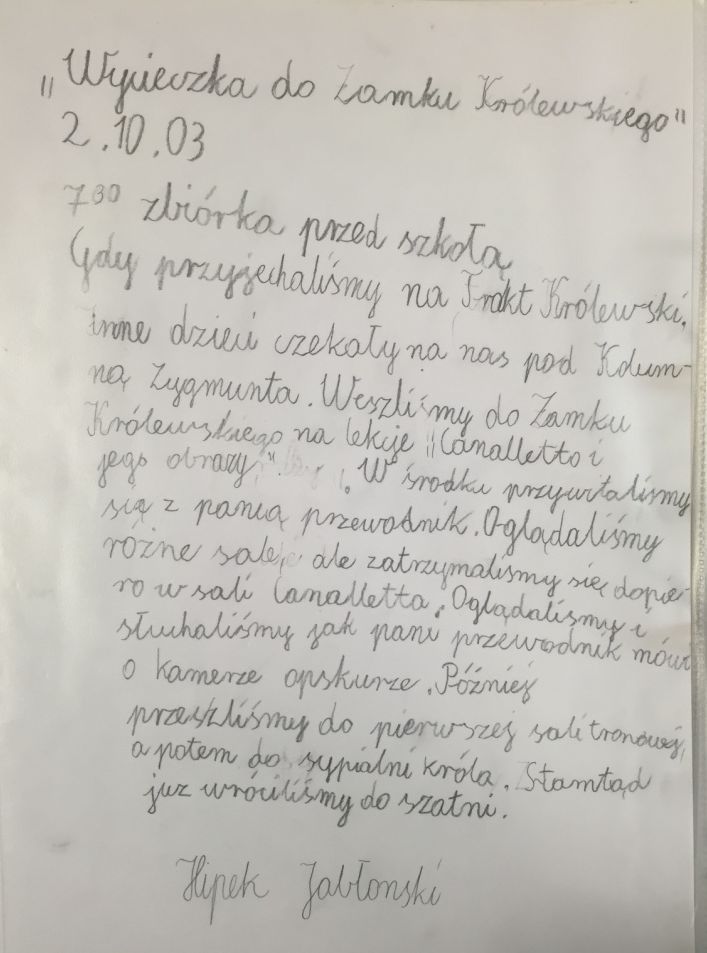 "Wycieczka do Zamku Królewskiego"
2.10.03
7³⁰ zbiórka przed szkołą
Gdy przyjechaliśmy na Trakt Królewski,
inne dzieci czekały na nas pod Kolum-
ną Zygmunta. Weszliśmy do Zamku
Królewskiego na lekcje "Canalletto i
jego obrazy". W środku przywitaliśmy
się z panią przewodnik. Oglądaliśmy
różne sale, ale zatrzymaliśmy się dopie-
ro w sali Canalletta. Oglądaliśmy i
słuchaliśmy jak pani przewodnik mówi
o kamerze opskurze. Później
przeszliśmy do pierwszej sali tronowej,
a potem do sypialni króla. Stamtąd
już wróciliśmy do szatni.
Hipek Jabłonski